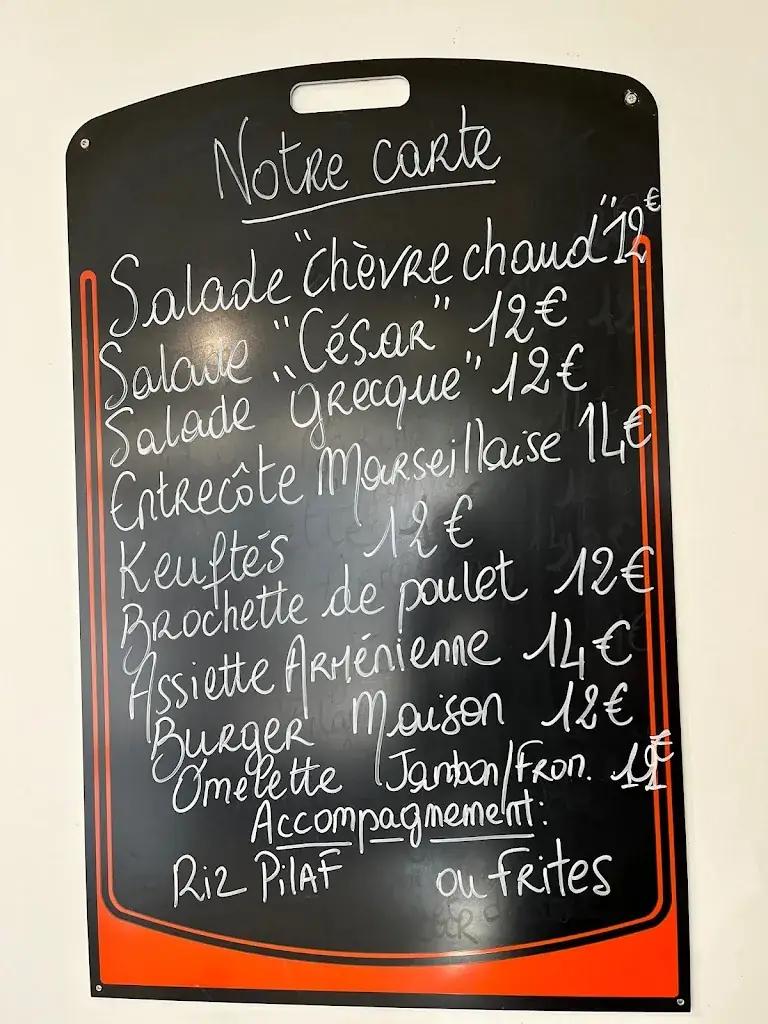 Notre carte
Salade "Chèvre chaud" 12€
Salade "César" 12€
Salade "Grecque" 12€
Entrecôte Marseillaise 14€
Keuftés 12€
Brochette de poulet 12€
Assiette Arménienne 14€
Burger Maison 12€
Omelette Jambon/From.
Accompagnement:
Riz Pilaf ou Frites